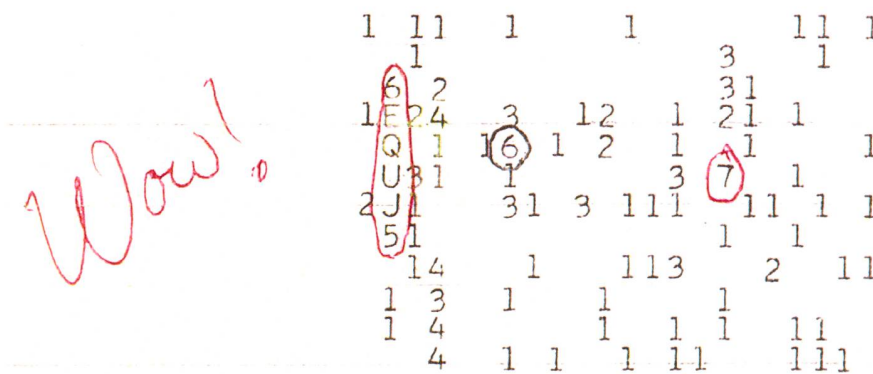 Wow!
1 11 1 1 11 1
1 3 1
6 2 31
1E24 3 12 1 21 1
Q 1 16 1 2 1 1 1
U31 1 3 7 1
2J1 31 3 111 11 1 1
51 1 1
14 1 113 2 11
1 3 1 1 1
1 4 1 1 1 11
4 1 1 1 11 111